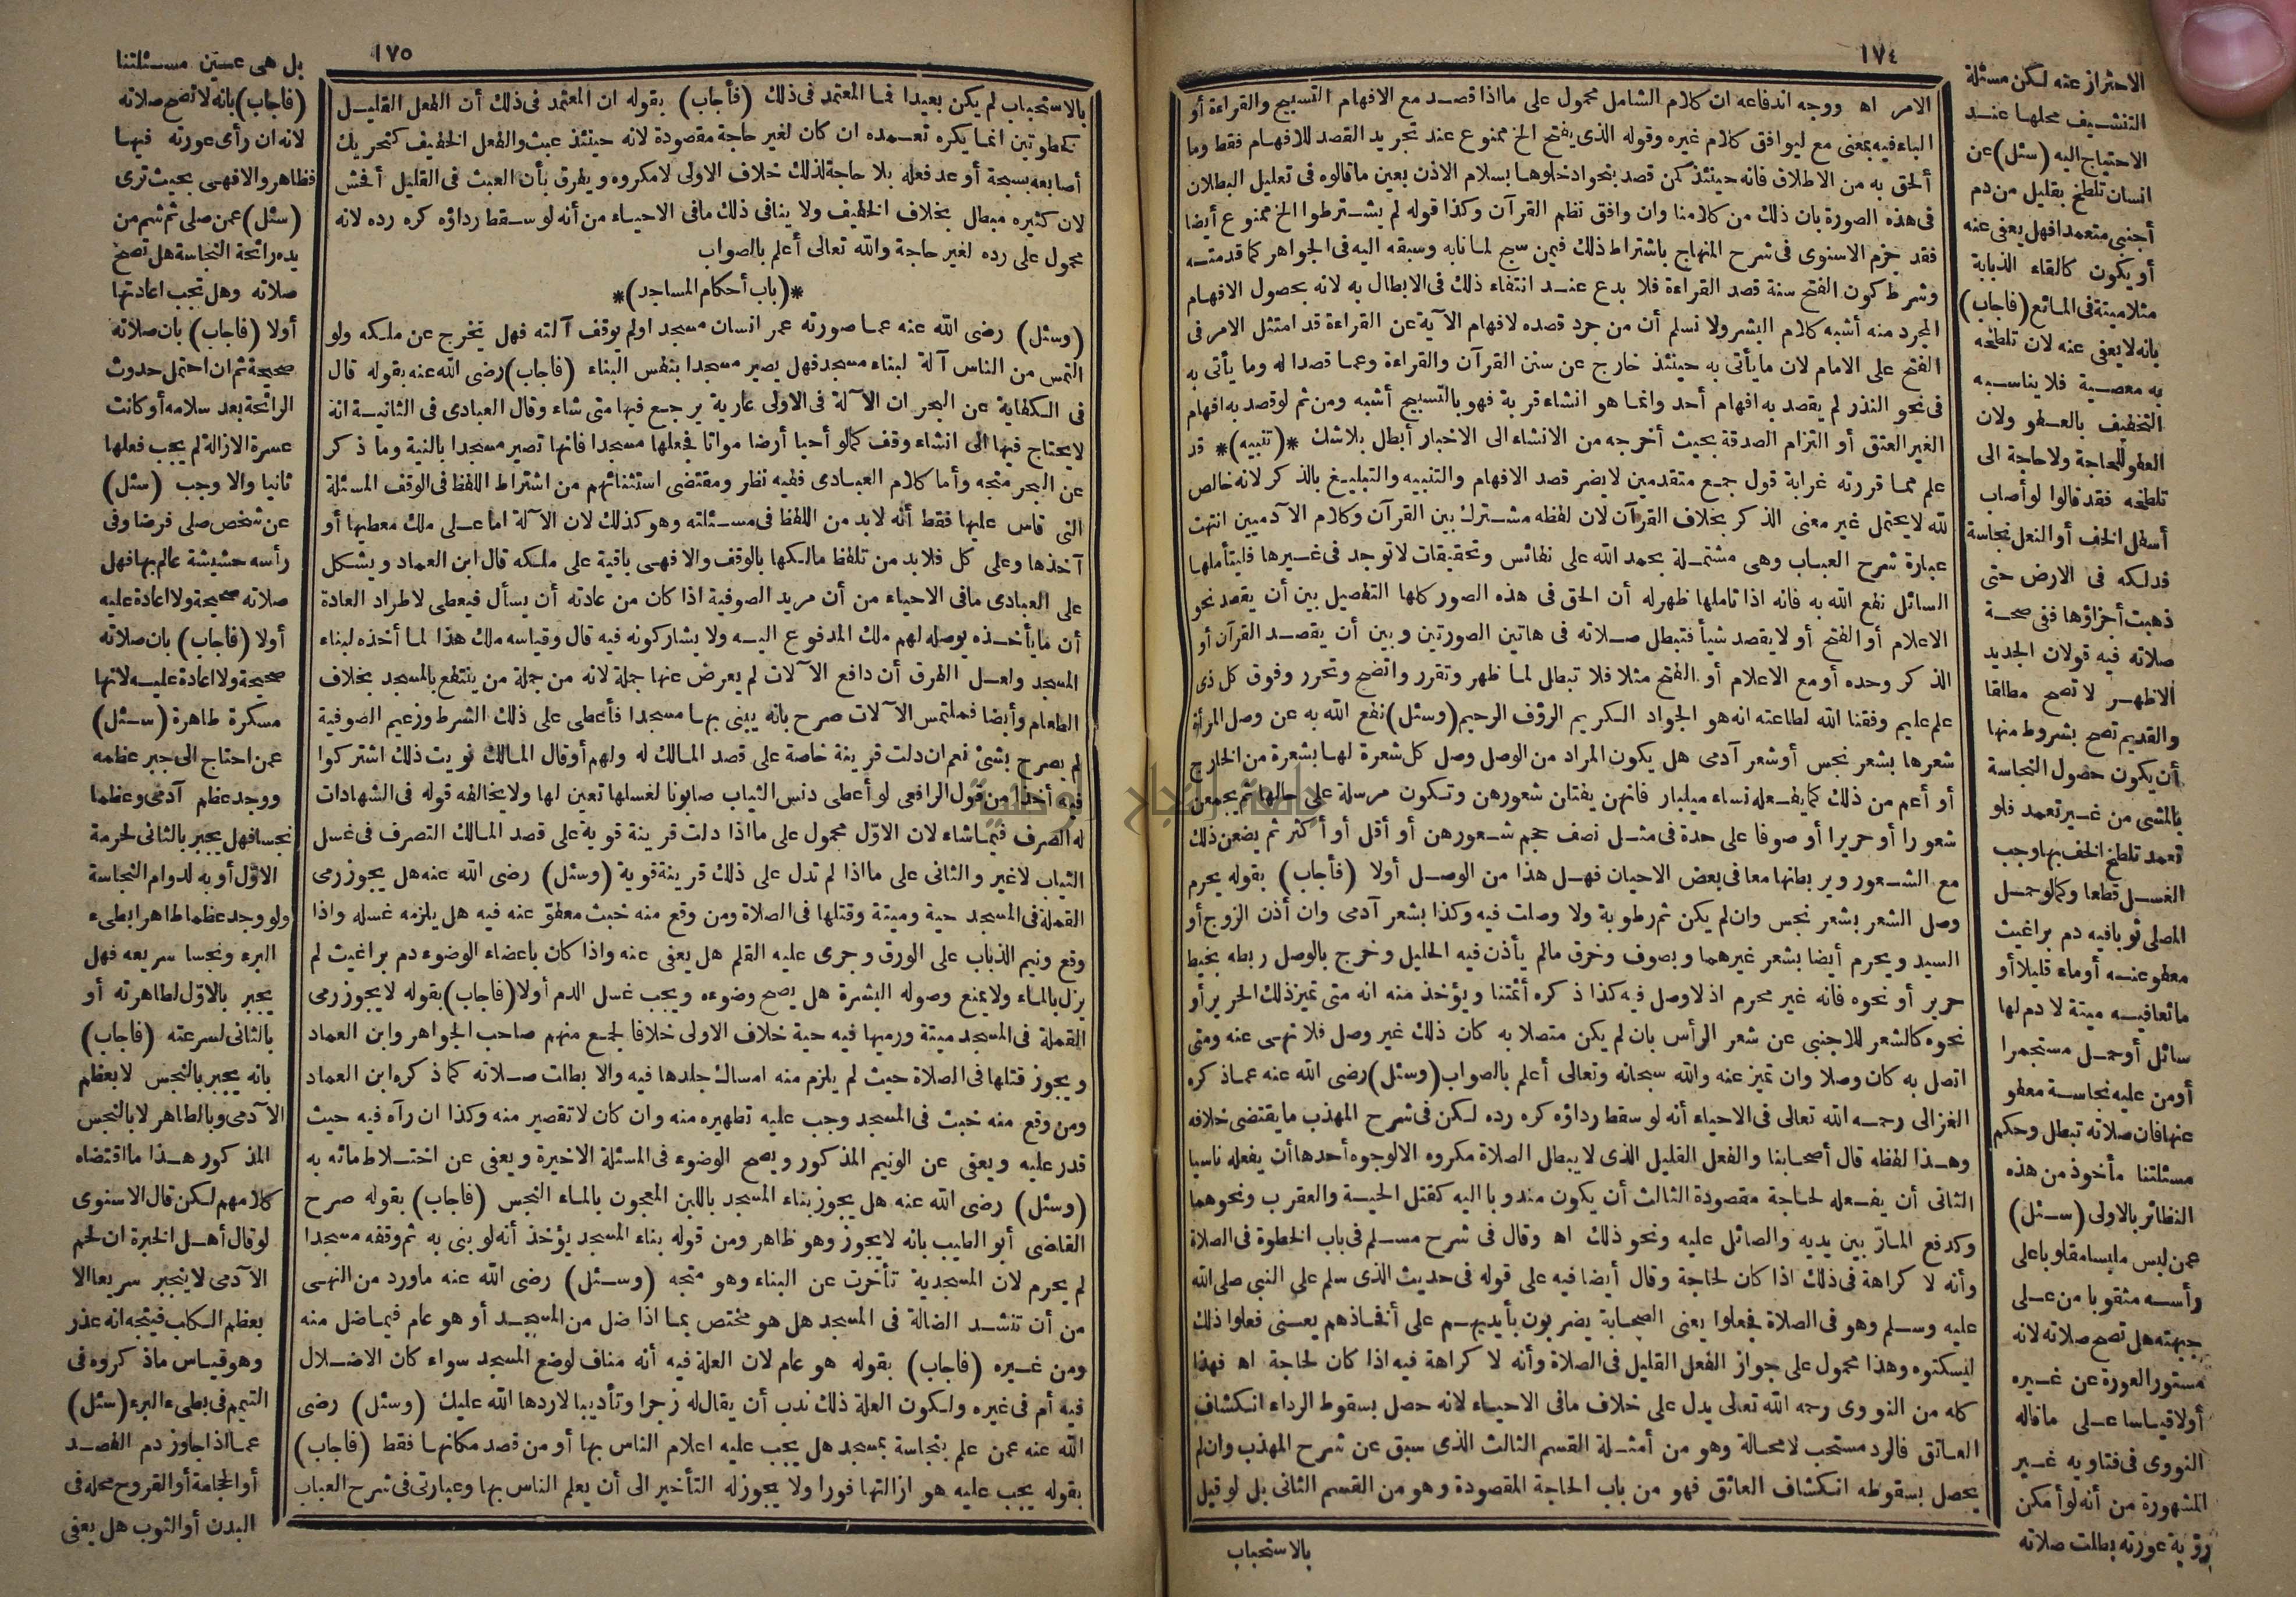 ١٧٤
الامر اه ووجه اندفاعه ان كلام الشامل محمول على ما اذا قصد مع الافهام التسبيح والقراءة أو
الباء فيه بمعنى مع ليوافق كلام غيره وقوله الذى يفتح الخ ممنوع عند تجريد القصد للافهام فقط وما
ألحق به من الاطلاق فانه حينئذ كمن قصد بنحو ادخلوها بسلام الاذن بعين ما قالوه فى تعليل البطلان
فى هذه الصورة بان ذلك من كلامنا وان وافق نظم القرآن وكذا قوله لم يشترطوا الخ ممنوع أيضا
فقد جزم الاسنوى فى شرح المنهاج باشتراط ذلك فيمن سبح لما نابه وسبقه اليه فى الجواهر كما قدمته
وشرط كون الفتح سنة قصد القراءة فلا بدع عند انتفاء ذلك فى الابطال به لانه بحصول الافهام
المجرد منه أشبه كلام البشر ولا نسلم أن من جرد قصده لافهام الآية عن القراءة قد امتثل الامر فى
الفتح على الامام لان ما يأتى به حينئذ خارج عن سنن القرآن والقراءة وعما قصدا له وما يأتى به
فى نحو النذر لم يقصد به افهام أحد وانما هو انشاء قربة فهو بالتسبيح أشبه ومن ثم لو قصد به افهام
الغير العتق أو التزام الصدقة بحيث أخرجه من الانشاء الى الاخبار أبطل بلا شك *(تنبيه)* قد
علم مما قررته غرابة قول جمع متقدمين لا يضر قصد الافهام والتنبيه والتبليغ بالذكر لانه خالص
لله لا يحتمل غير معنى الذكر بخلاف القرآن لان لفظه مشترك بين القرآن وكلام الآدميين انتهت
عبارة شرح العباب وهى مشتملة بحمد الله على نفائس وتحقيقات لا توجد فى غيرها فليتأملها
السائل نفع الله به فانه اذا تاملها ظهر له أن الحق فى هذه الصور كلها التفصيل بين أن يقصد نحو
الاعلام أو الفتح أو لا يقصد شيأ فتبطل صلاته فى هاتين الصورتين وبين أن يقصد القرآن أو
الذكر وحده أو مع الاعلام أو الفتح مثلا فلا تبطل لما ظهر وتقرر واتضح وتحرر وفوق كل ذى
علم عليم وفقنا الله لطاعته انه هو الجواد الكريم الرؤف الرحيم (وسئل) نفع الله به عن وصل المرأة
شعرها بشعر نجس أو شعر آدمى هل يكون المراد من الوصل وصل كل شعرة لها بشعرة من الخارج
أو أعم من ذلك كما يفعله نساء مليبار فانهن يفتان شعورهن وتكون مرسلة على حالها ثم يجمعن
شعورا أو حريرا أو صوفا على حدة فى مثل نصف حجم شعورهن أو أقل أو أكثر ثم يضعن ذلك
مع الشعور ويربطانها معا فى بعض الاحيان فهل هذا من الوصل أولا (فأجاب) بقوله يحرم
وصل الشعر بشعر نجس وان لم يكن ثم رطوبة ولا وصلت فيه وكذا بشعر آدمى وان أذن الزوج أو
السيد ويحرم أيضا بشعر غيرهما وبصوف وخرق مالم يأذن فيه الحليل وخرج بالوصل ربطه بخيط
حرير أو نحوه فانه غير محرم اذ لا وصل فيه كذا ذكره أئمتنا ويؤخذ منه انه متى تميز ذلك الحرير أو
نحوه كالشعر للاجنبى عن شعر الرأس بان لم يكن متصلا به كان ذلك غير وصل فلا نهى عنه ومتى
اتصل به كان وصلا وان تميز عنه والله سبحانه وتعالى أعلم بالصواب (وسئل) رضى الله عنه عما ذكره
الغزالى رحمه الله تعالى فى الاحياء أنه لو سقط رداؤه كره رده لكن فى شرح المهذب ما يقتضى خلافه
وهذا لفظه قال أصحابنا والفعل القليل الذى لا يبطل الصلاة مكروه الا لوجوه أحدها أن يفعله ناسيا
الثانى أن يفعله لحاجة مقصودة الثالث أن يكون مندوبا اليه كقتل الحية والعقرب ونحوهما
وكدفع المار بين يديه والصائل عليه ونحو ذلك اه وقال فى شرح مسلم فى باب الخطوة فى الصلاة
وأنه لا كراهة فى ذلك اذا كان لحاجة وقال أيضا فيه على قوله فى حديث الذى سلم على النبى صلى الله
عليه وسلم وهو فى الصلاة فجعلوا يعنى الصحابة يضربون بأيديهم على أفخاذهم يعنى فعلوا ذلك
ليسكتوه وهذا محمول على جواز الفعل القليل فى الصلاة وأنه لا كراهة فيه اذا كان لحاجة اه فهذا
كله من النووى رحمه الله تعالى يدل على خلاف مافى الاحياء لانه حصل بسقوط الرداء انكشاف
العاتق فالرد مستحب لا محالة وهو من أمثلة القسم الثالث الذى سبق عن شرح المهذب وان لم
يحصل بسقوطه انكشاف العاتق فهو من باب الحاجة المقصودة وهو من القسم الثانى بل لو قيل
بالاستحباب
الاحتراز عنه لكن مسئلة
التنشيف محلها عند
الاحتياج اليه (سئل) عن
انسان تلطخ بقليل من دم
أجنبى متعمدا فهل يعفى عنه
أو يكون كالقاء الذبابة
مثلا ميتة فى المائع (فاجاب)
بانه لا يعفى عنه لان تلطخه
به معصية فلا يناسبه
التخفيف بالعفو ولان
العفو للحاجة ولا حاجة الى
تلطخه فقد قالوا لو أصاب
أسفل الخف أو النعل نجاسة
فدلكه فى الارض حتى
ذهبت أجزاؤها ففى صحة
صلاته فيه قولان الجديد
الاظهر لا تصح مطلقا
والقديم تصح بشروط منها
أن يكون حصول النجاسة
بالمشى من غير تعمد فلو
تعمد تلطخ الخف بها وجب
الغسل قطعا وكما لو حمل
المصلى ثوبا فيه دم براغيث
معفو عنه أو ماء قليلا أو
مائعا فيه ميتة لا دم لها
سائل أو حمل مستجمرا
أو من عليه نجاسة معفو
عنها فان صلاته تبطل وحكم
مسئلتنا مأخوذ من هذه
النظائر بالاولى (سئل)
عمن لبس ملبسا مقلوبا على
رأسه مثقوبا من على
جبهته هل تصح صلاته لانه
مستور العورة عن غيره
أولا قياسا على ما قاله
النووى فى فتاويه غير
المشهورة من أنه لو أمكن
رؤية عورته بطلت صلاته
١٧٥
بالاستحباب لم يكن بعيدا فما المعتمد فى ذلك (فأجاب) بقوله ان المعتمد فى ذلك أن الفعل القليل
كخطوتين انما يكره تعمده ان كان لغير حاجة مقصودة لانه حينئذ عبث والفعل الخفيف كتحريك
أصابعه بسبحة أو عد فعله بلا حاجة لذلك خلاف الاولى لا مكروه ويفرق بأن العبث فى القليل أفحش
لان كثيره مبطل بخلاف الخفيف ولا ينافى ذلك مافى الاحياء من أنه لو سقط رداؤه كره رده لانه
محمول على رده لغير حاجة والله تعالى أعلم بالصواب
*(باب أحكام المساجد)*
(وسئل) رضى الله عنه عما صورته عمر انسان مسجد اولم يوقف آلته فهل تخرج عن ملكه ولو
التمس من الناس آلة لبناء مسجد فهل يصير مسجدا بنفس البناء (فاجاب) رضى الله عنه بقوله قال
فى الكفاية عن البحر ان الآلة فى الاولى عارية يرجع فيها متى شاء وقال العبادى فى الثانية انه
لا يحتاج فيها الى انشاء وقف كما لو أحيا أرضا مواتا فجعلها مسجدا فانها تصير مسجدا بالنية وما ذكر
عن البحر متجه وأما كلام العبادى ففيه نظر ومقتضى استثنائهم من اشتراط اللفظ فى الوقف المسئلة
التى قاس عليها فقط أنه لابد من اللفظ فى مسئلته وهو كذلك لان الآلة اما على ملك معطيها أو
آخذها وعلى كل فلابد من تلفظ مالكها بالوقف والا فهى باقية على ملكه قال ابن العماد ويشكل
على العبادى مافى الاحياء من أن مريد الصوفية اذا كان من عادته أن يسأل فيعطى لاطراد العادة
أن ما يأخذه يوصله لهم ملك المدفوع اليه ولا يشاركونه فيه قال وقياسه ملك هذا لما أخذه لبناء
المسجد ولعل الفرق أن دافع الآلات لم يعرض عنها جملة لانه من جملة من ينتفع بالمسجد بخلاف
الطعام وأيضا فملتمس الآلات صرح بانه يبنى بها مسجدا فأعطى على ذلك الشرط وزعيم الصوفية
لم يصرح بشئ نعم ان دلت قرينة خاصة على قصد المالك له ولهم أو قال المالك نويت ذلك اشتركوا
فيه أخذا من قول الرافعى لو أعطى دنس الثياب صابونا لغسلها تعين لها ولا يخالفه قوله فى الشهادات
له الصرف فيما شاء لان الاوّل محمول على ما اذا دلت قرينة قوية على قصد المالك التصرف فى غسل
الثياب لا غير والثانى على ما اذا لم تدل على ذلك قرينة قوية (وسئل) رضى الله عنه هل يجوز رمى
القملة فى المسجد حية وميتة وقتلها فى الصلاة ومن وقع منه خبث معفو عنه فيه هل يلزمه غسله واذا
وقع ونيم الذباب على الورق وجرى عليه القلم هل يعفى عنه واذا كان باعضاء الوضوء دم براغيث لم
يزل بالماء ولا يمنع وصوله البشرة هل يصح وضوءه ويجب غسل الدم أولا (فاجاب) بقوله لا يجوز رمى
القملة فى المسجد ميتة ورميها فيه حية خلاف الاولى خلافا لجمع منهم صاحب الجواهر وابن العماد
ويجوز قتلها فى الصلاة حيث لم يلزم منه امساك جلدها فيه والا بطلت صلاته كما ذكره ابن العماد
ومن وقع منه خبث فى المسجد وجب عليه تطهيره منه وان كان لا تقصير منه وكذا ان رآه فيه حيث
قدر عليه ويعفى عن الونيم المذكور ويصح الوضوء فى المسئلة الاخيرة ويعفى عن اختلاط مائه به
(وسئل) رضى الله عنه هل يجوز بناء المسجد باللبن المعجون بالماء النجس (فاجاب) بقوله صرح
القاضى أبو الطيب بانه لا يجوز وهو ظاهر ومن قوله بناء المسجد يؤخذ أنه لو بنى به ثم وقفه مسجدا
لم يحرم لان المسجدية تأخرت عن البناء وهو متجه (وسئل) رضى الله عنه ماورد من النهى
من أن تنشد الضالة فى المسجد هل هو مختص بما اذا ضل من المسجد أو هو عام فيما ضل منه
ومن غيره (فاجاب) بقوله هو عام لان العلة فيه أنه مناف لوضع المسجد سواء كان الاضلال
فيه أم فى غيره ولكون العلة ذلك ندب أن يقال له زجرا وتأديبا لا ردها الله عليك (وسئل) رضى
الله عنه عمن علم بنجاسة بمسجد هل يجب عليه اعلام الناس بها أو من قصد مكانها فقط (فاجاب)
بقوله يجب عليه هو ازالتها فورا ولا يجوز له التأخير الى أن يعلم الناس بها وعبارتى فى شرح العباب
بل هى عين مسئلتنا
(فاجاب) بانه لا تصح صلاته
لانه ان رأى عورته فيها
فظاهر والا فهى بحيث ترى
(سئل) عمن صلى ثم شم من
يده رائحة النجاسة هل تصح
صلاته وهل تجب اعادتها
أولا (فاجاب) بان صلاته
صحيحة ثم ان احتمل حدوث
الرائحة بعد سلامه أو كانت
عسرة الازالة لم يجب فعلها
ثانيا والا وجب (سئل)
عن شخص صلى فرضا وفى
رأسه حشيشة عالم بها فهل
صلاته صحيحة ولا اعادة عليه
أولا (فاجاب) بان صلاته
صحيحة ولا اعادة عليه لانها
مسكرة طاهرة (سئل)
عمن احتاج الى جبر عظمه
ووجد عظم آدمى وعظما
نجسا فهل يجبر بالثانى لحرمة
الاوّل أو به لدوام النجاسة
ولو وجد عظما طاهرا بطىء
البرء ونجسا سريعه فهل
يجبر بالاوّل لطاهرته أو
بالثانى لسرعته (فاجاب)
بانه يجبر بالنجس لا بعظم
الآدمى وبالطاهر لا بالنجس
المذكور هذا ما اقتضاه
كلامهم لكن قال الاسنوى
لو قال أهل الخبرة ان لحم
الآدمى لا ينجبر سريعا الا
بعظم الكلب فيتجه انه عذر
وهو قياس ماذكروه فى
التيمم فى بطىء البرء (سئل)
عما اذا جاوز دم الفصد
أو الحجامة أو القروح محله فى
البدن أو الثوب هل يعفى